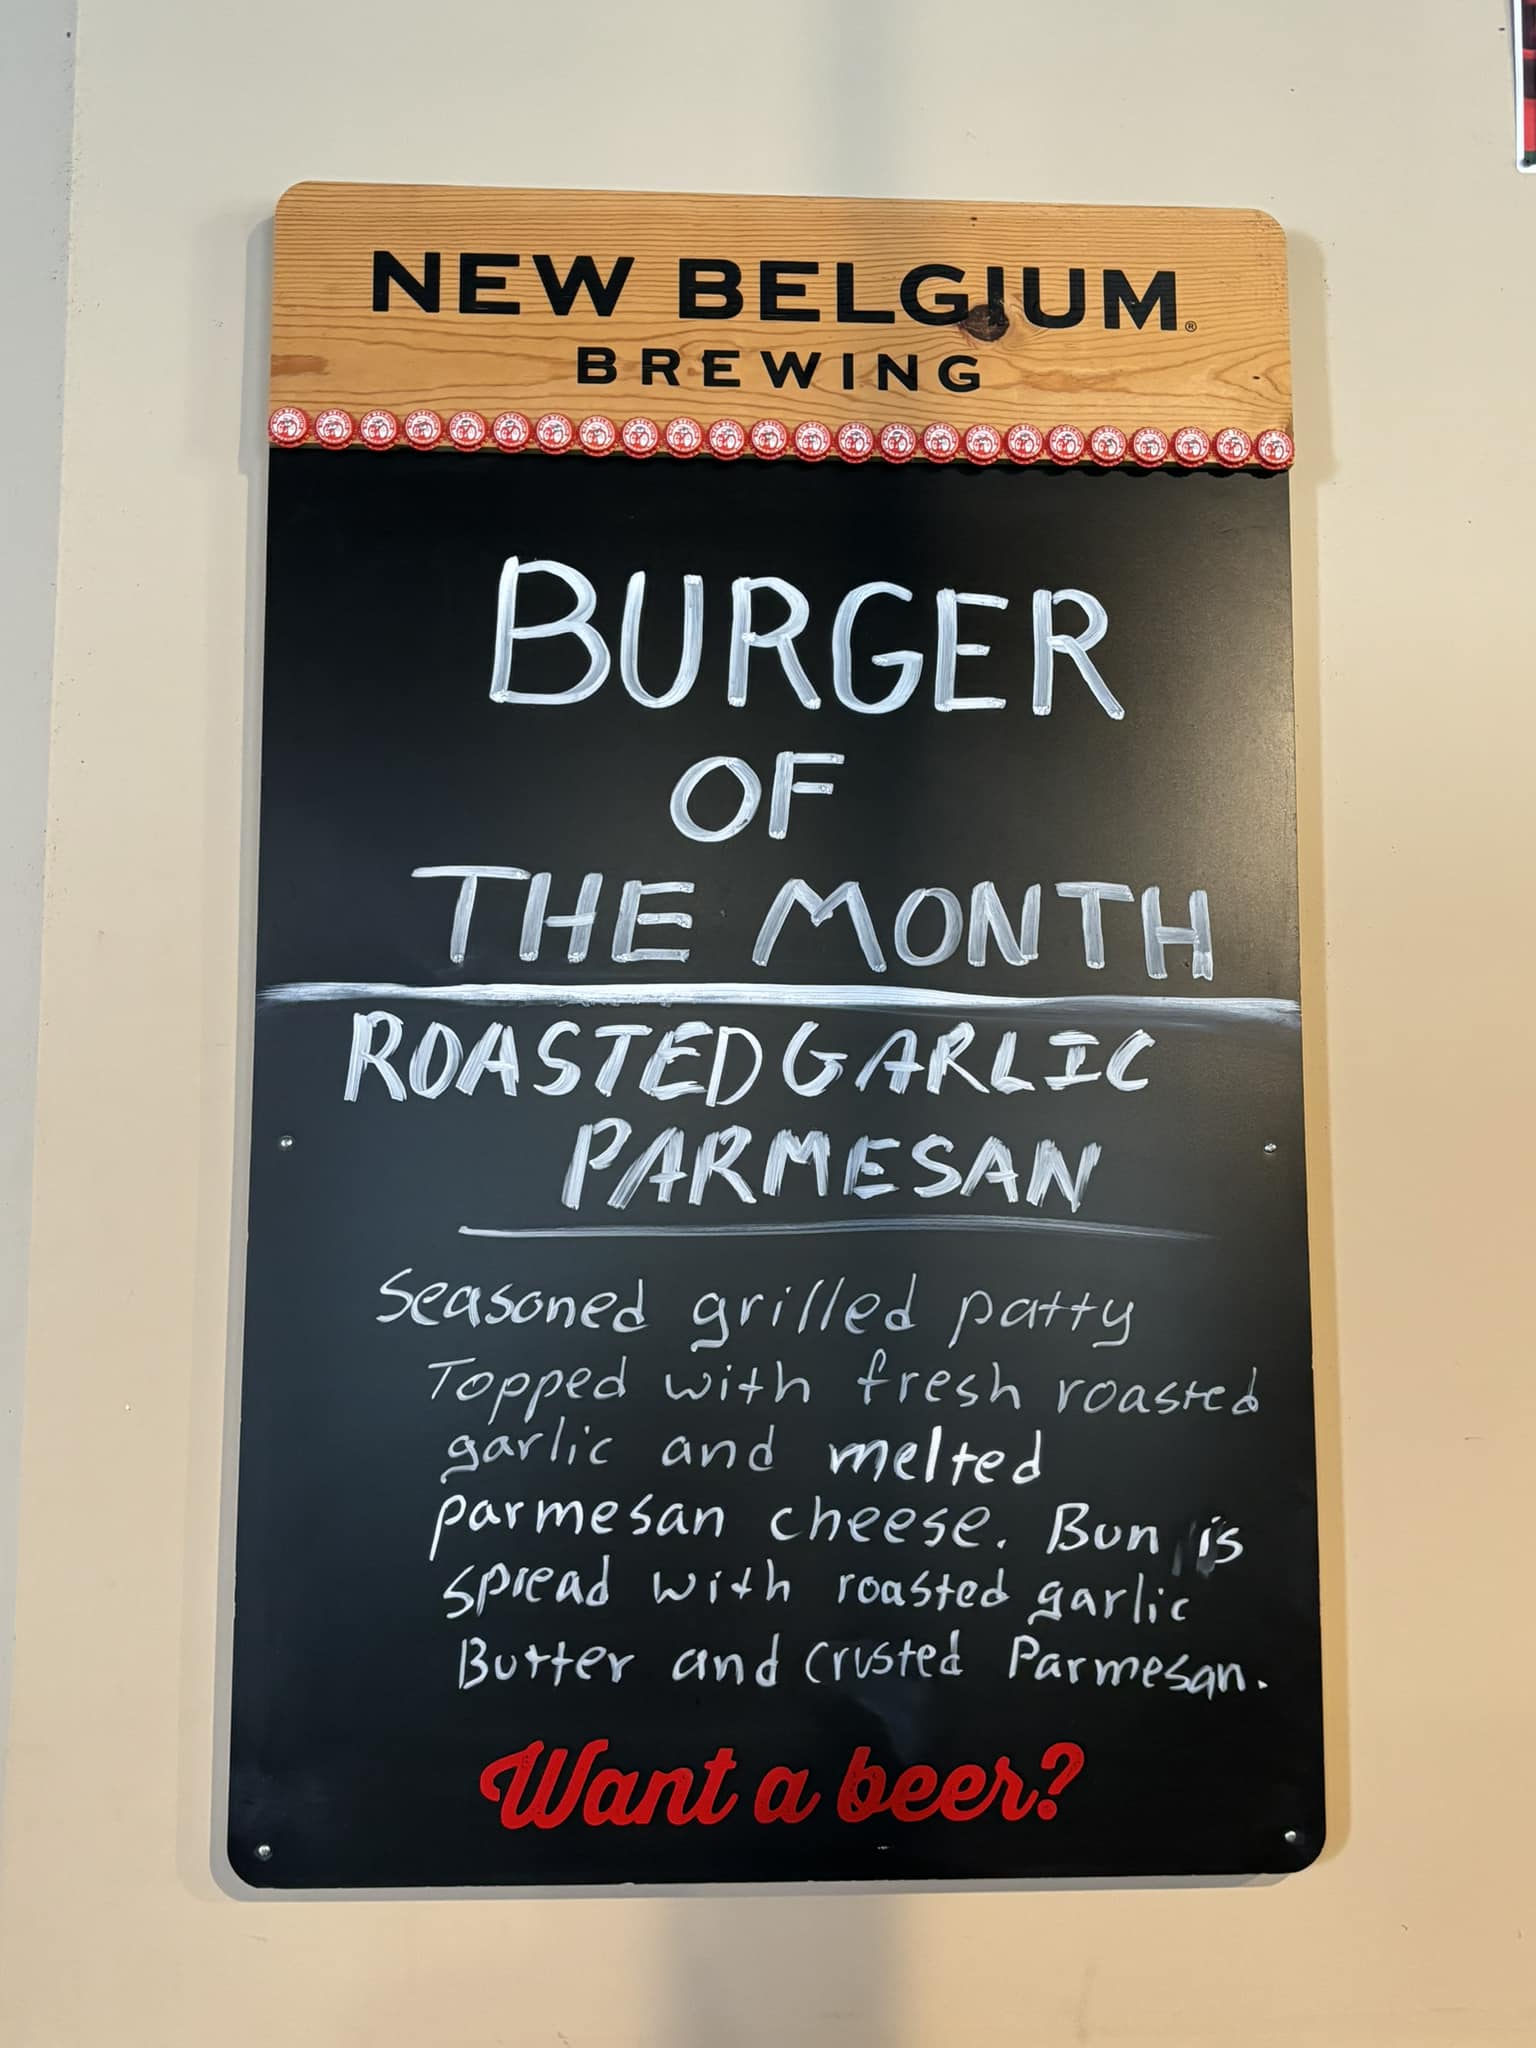 NEW BELGIUM®
BREWING
BURGER
OF
THE MONTH
ROASTED GARLIC
PARMESAN
Seasoned grilled patty
Topped with fresh roasted
garlic and melted
parmesan cheese. Bun is
spread with roasted garlic
Butter and crusted Parmesan.
Want a beer?